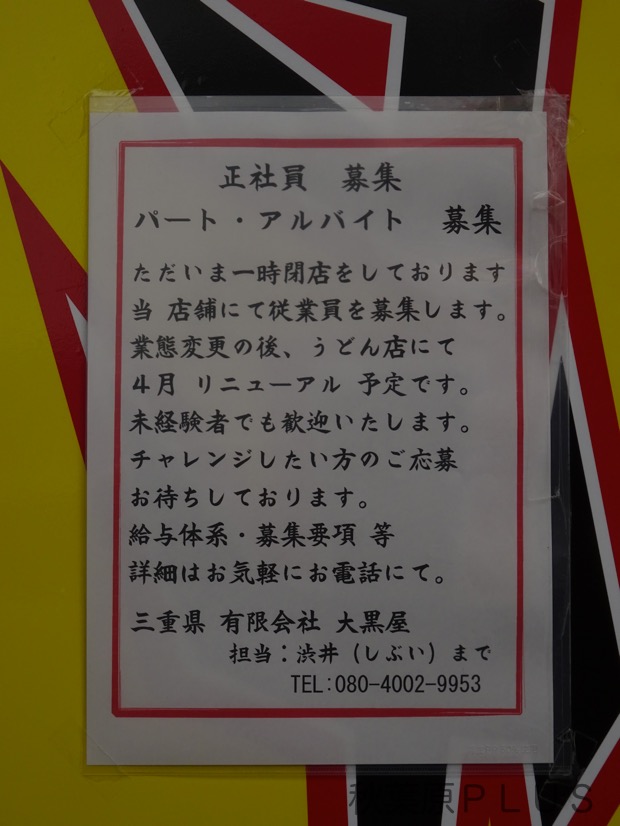 正社員 募集
パート・アルバイト 募集
ただいま一時閉店をしております
当 店舗にて従業員を募集します。
業態変更の後、うどん店にて
4月 リニューアル 予定です。
未経験者でも歓迎いたします。
チャレンジしたい方のご応募
お待ちしております。
給与体系・募集要項 等
詳細はお気軽にお電話にて。
三重県 有限会社 大黒屋
担当：渋井（しぶい）まで
TEL:080-4002-9953
秋葉原PLUS